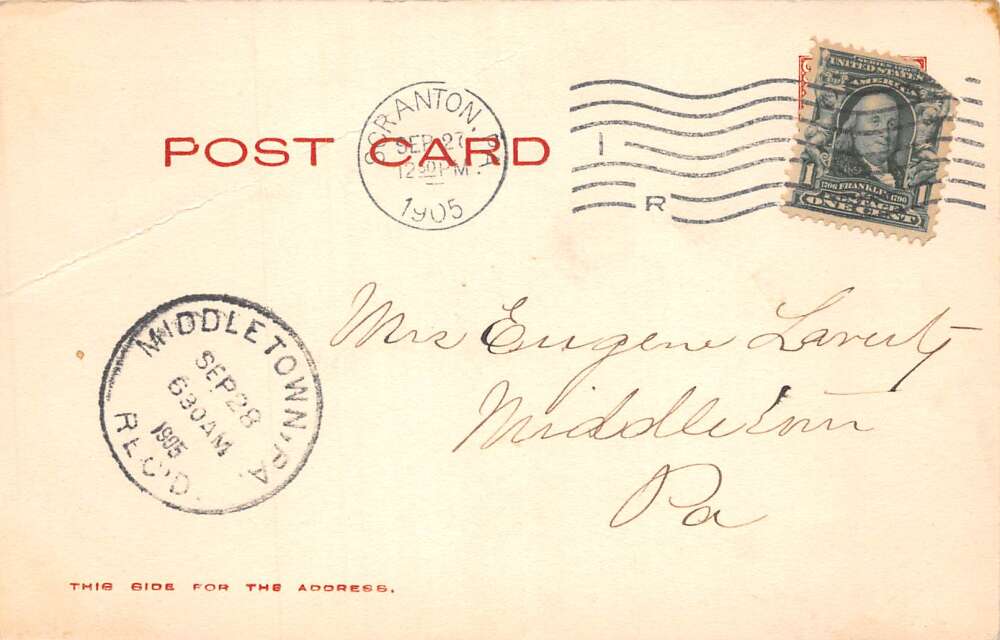 SERIES 1902
UNITED STATES
AMERICA
1706 FRANKLIN 1790
POSTAGE
1 ONE CENT 1
POST CARD
SCRANTON, PA.
SEP 27
12 30 PM
1905
I
R
Mrs Eugene Laverty
Middletown
Pa
MIDDLETOWN, PA.
SEP 28
630 AM
1905
REC'D.
THIS SIDE FOR THE ADDRESS.